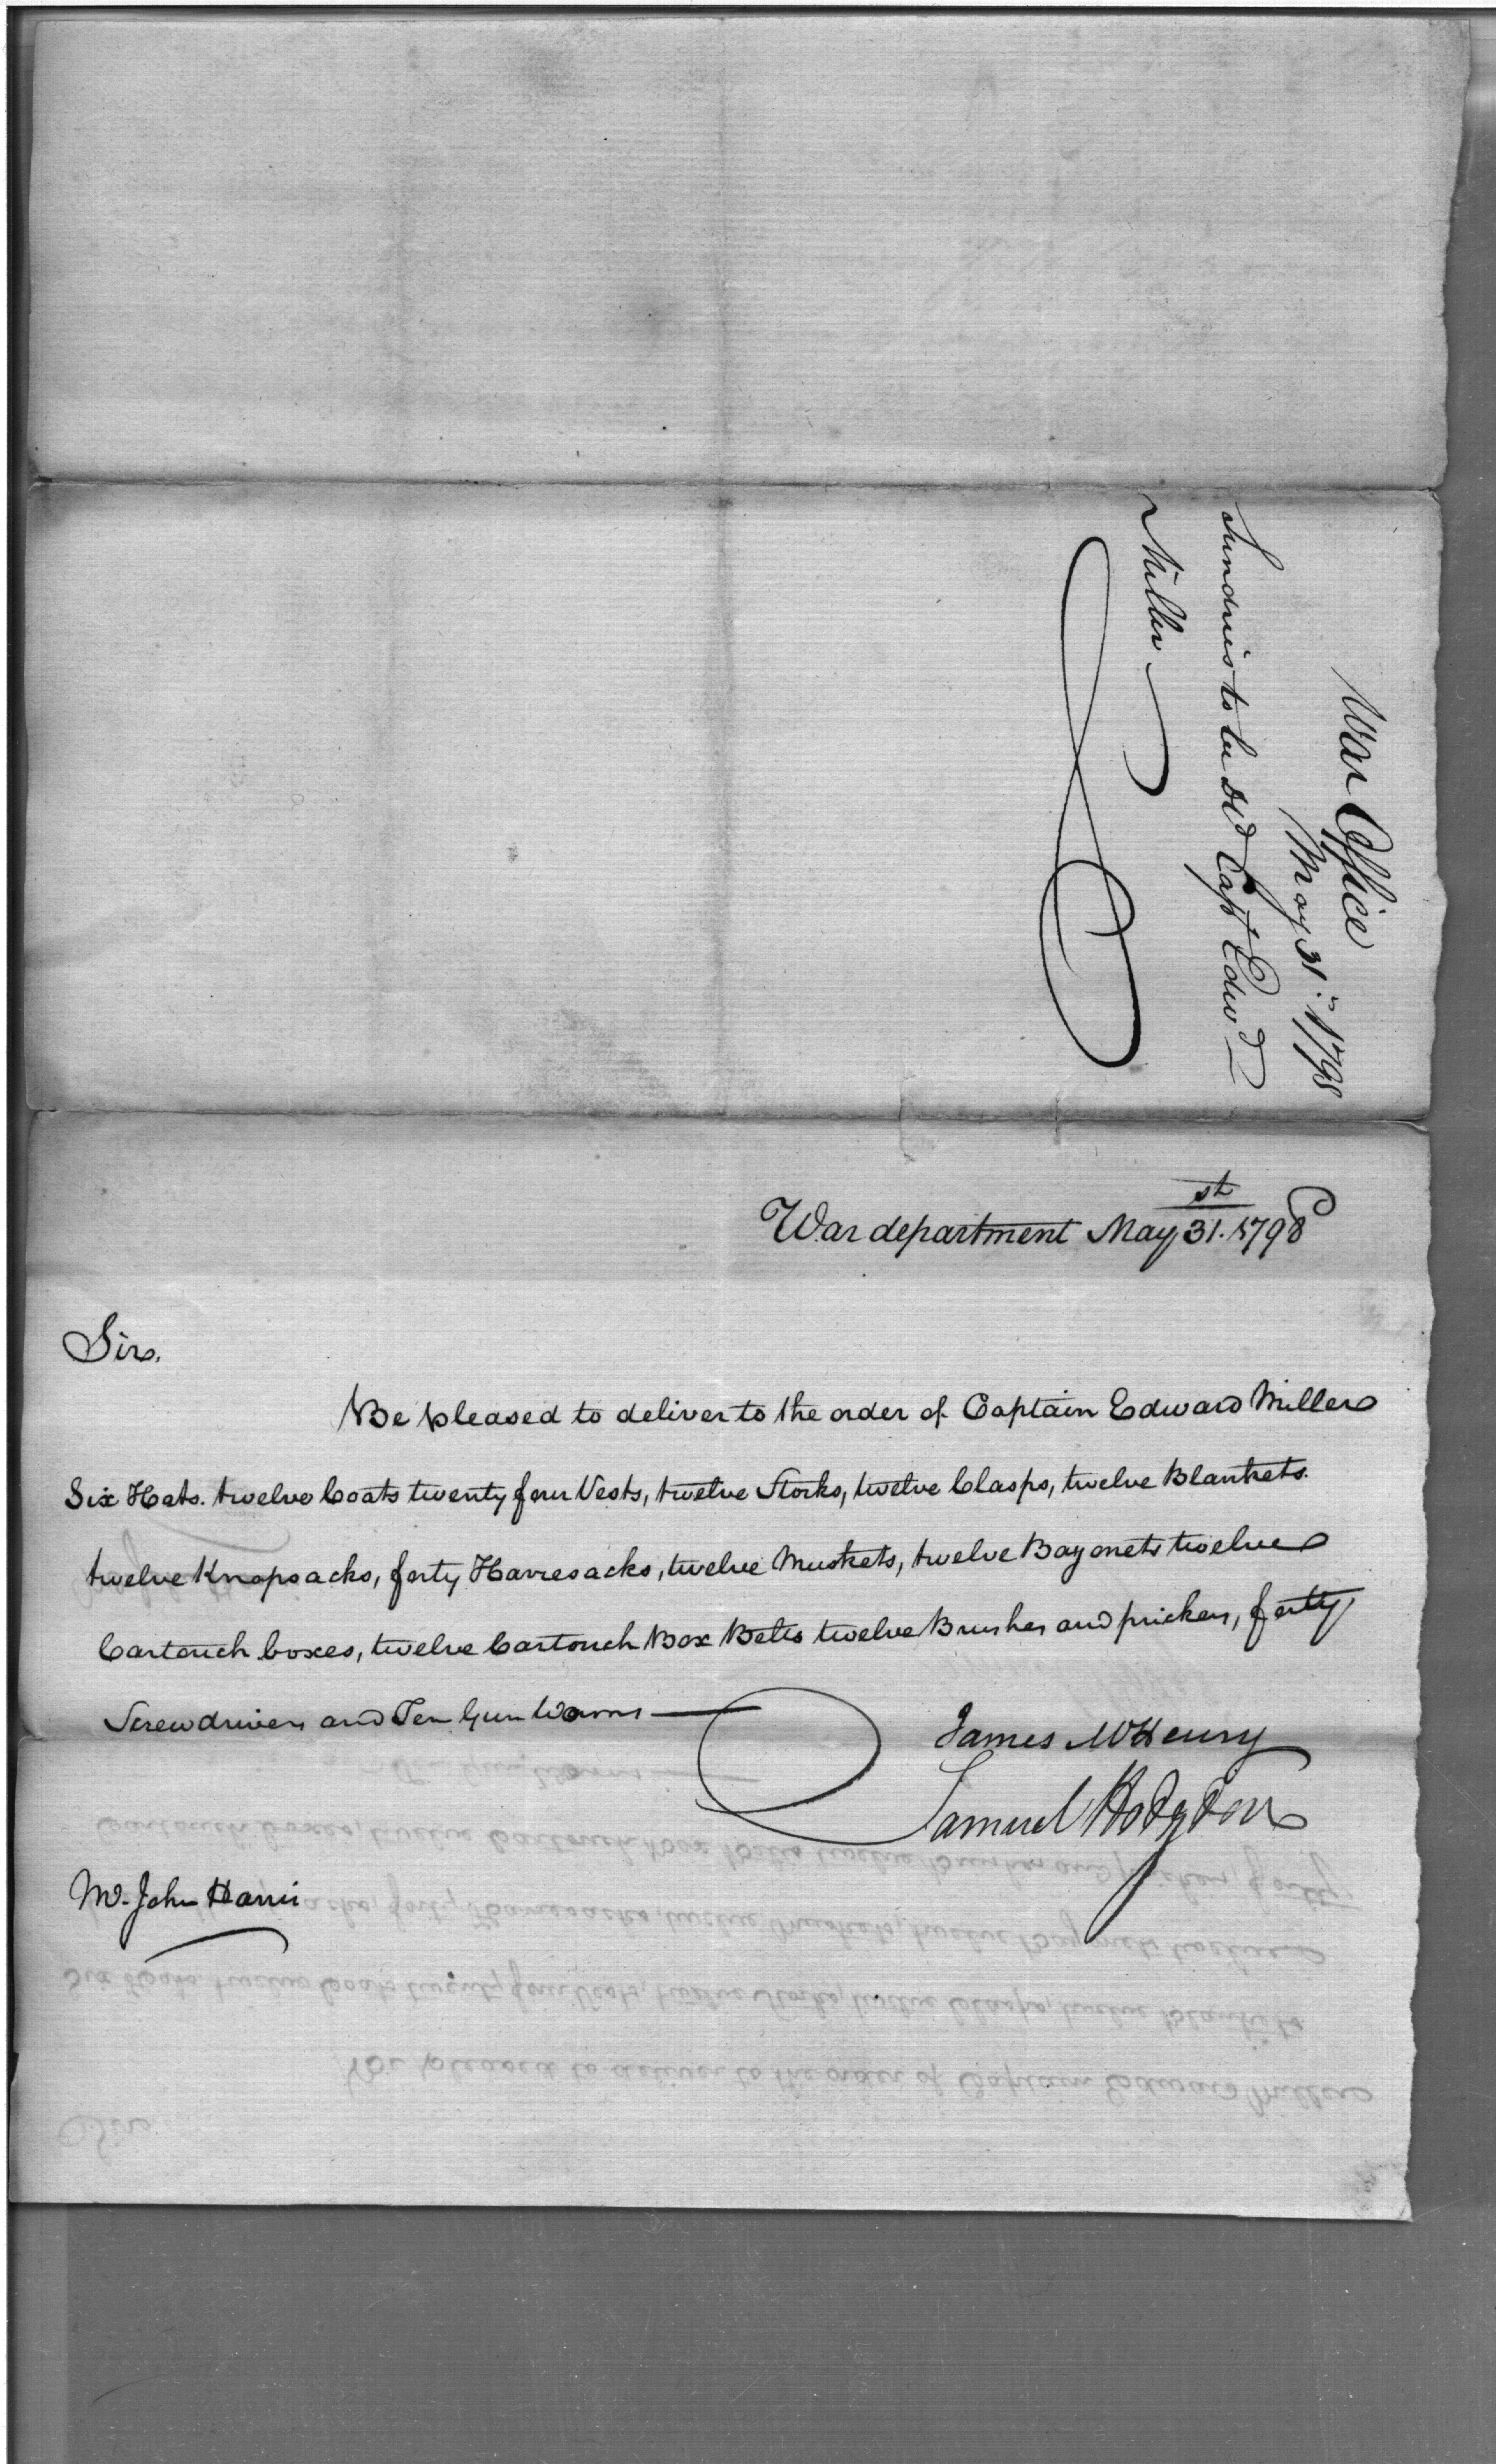 War Office
May 31st 1798
Sundries to be dd Capt Edwd
Miller
War department May 31st. 1798
Sir,
Be pleased to deliver to the order of Captain Edward Miller
Six Hats. twelve Coats twenty four Vests, twelve Stocks, twelve Clasps, twelve Blankets.
twelve Knapsacks, forty Havresacks, twelve Muskets, twelve Bayonets twelve
Cartouch boxes, twelve Cartouch Box Belts twelve Brushes and prickers, forty
Screwdrivers and Ten Gun Worms
James McHenry
Samuel Hodgdon
Mr. John Harris